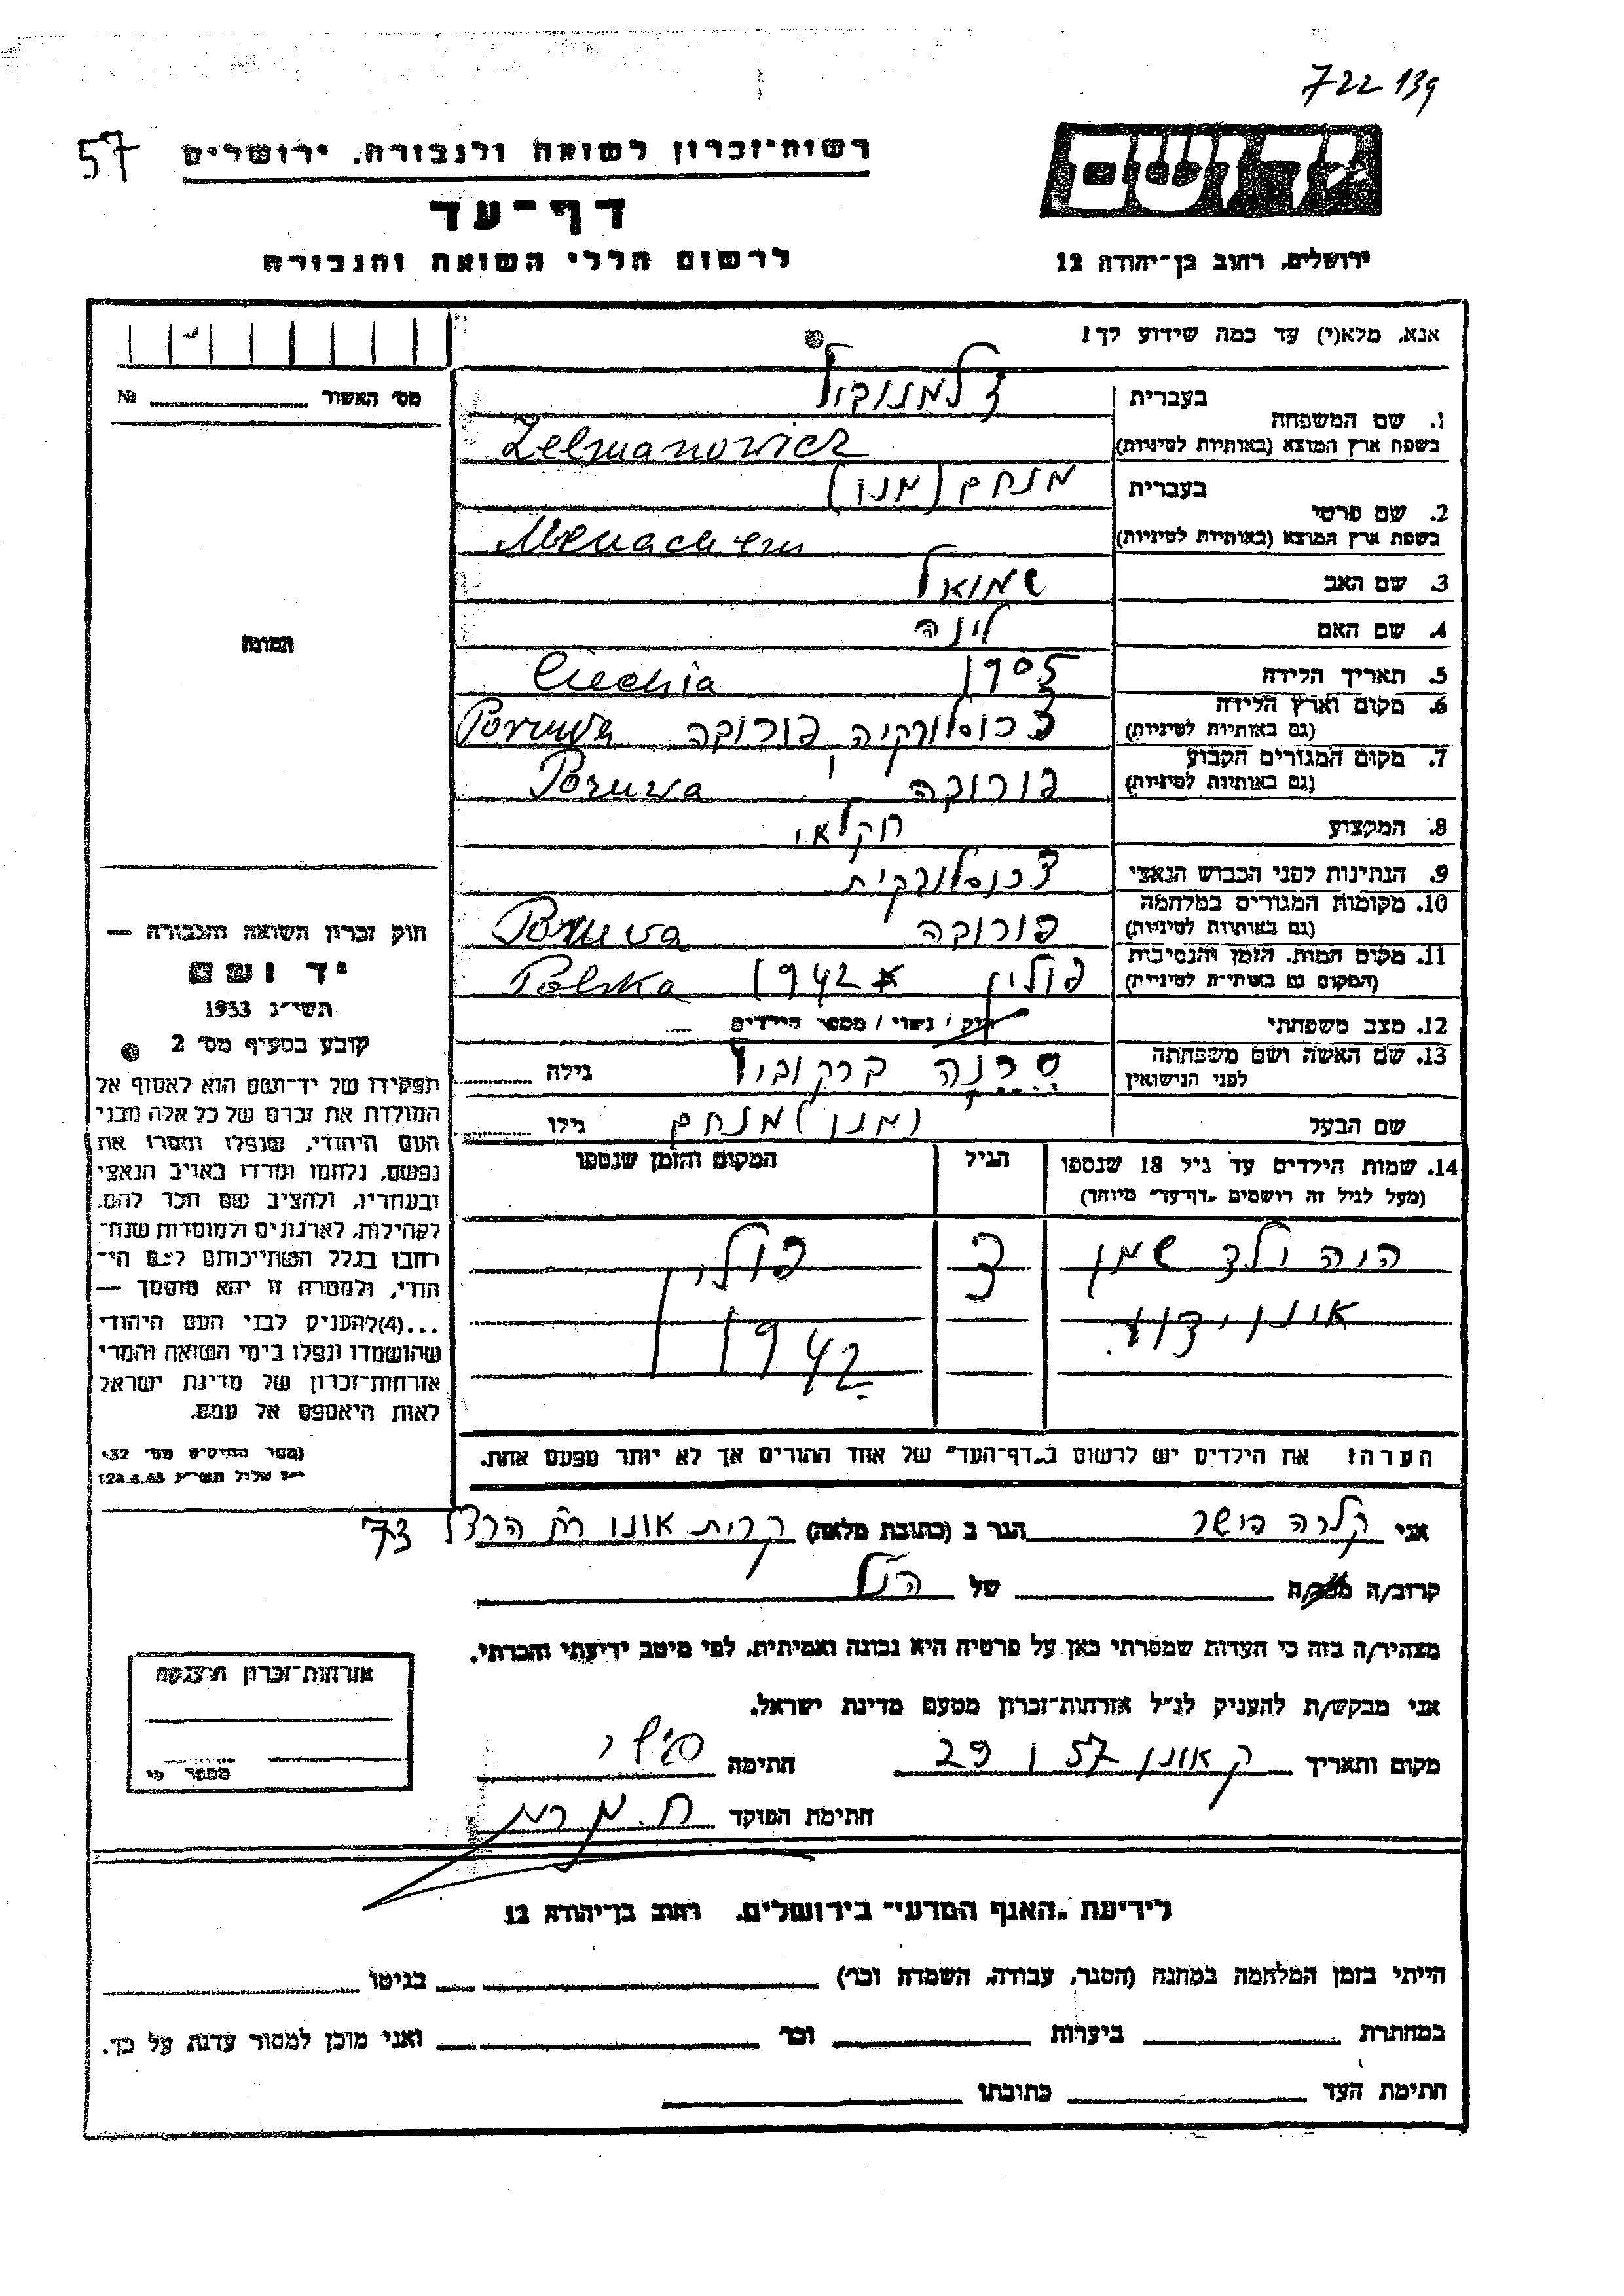 722 139
57
רשות־זכרון לשואה ולגבורה, ירושלים
דף־עד
לרשום חללי השואה והגבורה
ידושם
ירושלים, רחוב בן־יהודה 12
אנא, מלא(י) עד כמה שידוע לך!
מס׳ האשור № 
1. שם המשפחה
בעברית
זלמנוביץ
בשפת ארץ המוצא (באותיות לטיניות)
Zelmanowicz
2. שם פרטי
בעברית
מנחם (מנו)
בשפת ארץ המוצא (באותיות לטיניות)
Menachem
3. שם האב שמואל
4. שם האם לינה
התמונה
5. תאריך הלידה 1905 Czechia
6. מקום וארץ הלידה צכוסלובקיה פורובה Poruwa
(גם באותיות לטיניות)
7. מקום המגורים הקבוע פורובה Poruwa
(גם באותיות לטיניות)
8. המקצוע חקלאי
9. הנתינות לפני הכבוש הנאצי צכוסלובקית
10. מקומות המגורים במלחמה פורובה Poruwa
(גם באותיות לטיניות)
11. מקום המות, הזמן והנסיבות פולין 1942 Polska
(המקום גם באותיות לטיניות)
12. מצב משפחתי רוק / נשוי / מספר הילדים
13. שם האשה ושם משפחתה ברקוביץ גילה
לפני הנישואין
שם הבעל מנו) מנחם גילו
14. שמות הילדים עד גיל 18 שנספו הגיל המקום והזמן שנספו
(מעל לגיל זה רושמים „דף־עד״ מיוחד)
היה ילד שמו 3 פולין
אינו ידוע 1942
הערה: את הילדים יש לרשום ב„דף־העד״ של אחד ההורים אך לא יותר מפעם אחת.
חוק זכרון השואה והגבורה —
יד ושם
תשי״ג 1953
קובע בסעיף מס׳ 2
תפקידו של יד־ושם הוא לאסוף אל
המולדת את זכרם של כל אלה מבני
העם היהודי, שנפלו ומסרו את
נפשם, נלחמו ומרדו באויב הנאצי
ובעוזריו, ולהציב שם וזכר להם,
לקהילות, לארגונים ולמוסדות שנח־
רבו בגלל השתייכותם לעם הי־
הודי, ולמטרה זו יהא מוסמך —
...(4)להעניק לבני העם היהודי
שהושמדו ונפלו בימי השואה והמרי
אזרחות־זכרון של מדינת ישראל
לאות היאספם אל עמם.
(ספר החוקים מס׳ 132
אני קלרה פישר הגר ב (כתובת מלאה) קרית אונו רח הרצל 73
קרוב/ה מכר/ה של הנ״ל
מצהיר/ה בזה כי העדות שמסרתי כאן על פרטיה היא נכונה ואמיתית, לפי מיטב ידיעתי והכרתי.
אני מבקש/ת להעניק לנ״ל אזרחות־זכרון מטעם מדינת ישראל.
מקום ותאריך ק אונו 29 1 57 חתימה
חתימת הפוקד
אזרחות־זכרון הוענקה
מספר
לידיעת „האגף המדעי״ בירושלים, רחוב בן־יהודה 12
הייתי בזמן המלחמה במחנה (הסגר, עבודה, השמדה וכו׳) בגיטו
במחתרת ביערות וכו׳ ואני מוכן למסור עדות על כך.
חתימת העד כתובתו